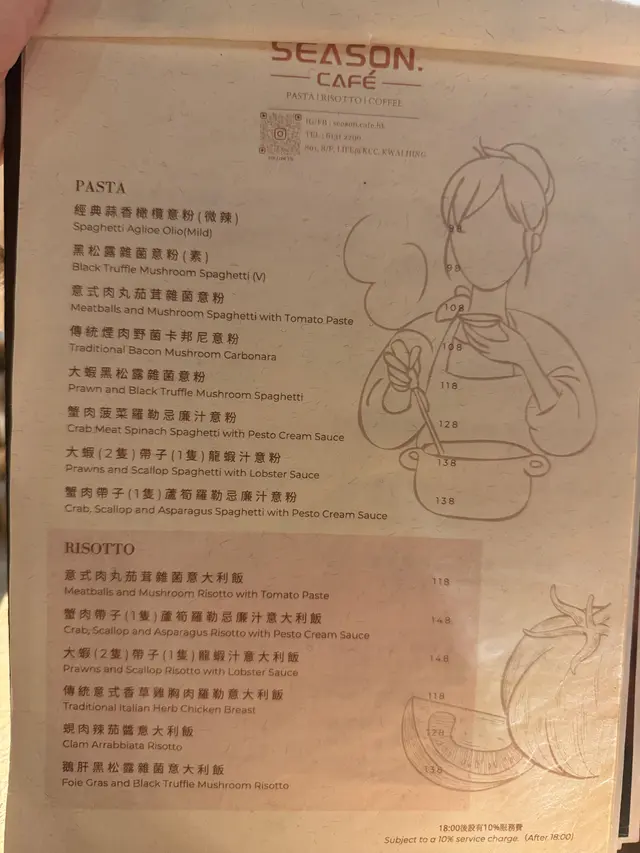 SEASON.
CAFÉ
PASTA | RISOTTO | COFFEE
IG/FB : season.cafe.hk
803, 8/F, LIFE@KCC, KWAI HING
PASTA
經典蒜香橄欖意粉(微辣) 98
Spaghetti Aglioe Olio(Mild)
黑松露雜菌意粉(素) 98
Black Truffle Mushroom Spaghetti (V)
意式肉丸茄茸雜菌意粉 108
Meatballs and Mushroom Spaghetti with Tomato Paste
傳統煙肉野菌卡邦尼意粉 108
Traditional Bacon Mushroom Carbonara
大蝦黑松露雜菌意粉 118
Prawn and Black Truffle Mushroom Spaghetti
蟹肉菠菜羅勒忌廉汁意粉 128
Crab Meat Spinach Spaghetti with Pesto Cream Sauce
大蝦(2隻)帶子(1隻)龍蝦汁意粉 138
Prawns and Scallop Spaghetti with Lobster Sauce
蟹肉帶子(1隻)蘆筍羅勒忌廉汁意粉 138
Crab, Scallop and Asparagus Spaghetti with Pesto Cream Sauce
RISOTTO
意式肉丸茄茸雜菌意大利飯 118
Meatballs and Mushroom Risotto with Tomato Paste
蟹肉帶子(1隻)蘆筍羅勒忌廉汁意大利飯 148
Crab, Scallop and Asparagus Risotto with Pesto Cream Sauce
大蝦(2隻)帶子(1隻)龍蝦汁意大利飯 148
Prawns and Scallop Risotto with Lobster Sauce
傳統意式香草雞胸肉羅勒意大利飯 118
Traditional Italian Herb Chicken Breast
蜆肉辣茄醬意大利飯 128
Clam Arrabbiata Risotto
鵝肝黑松露雜菌意大利飯 138
Foie Gras and Black Truffle Mushroom Risotto
18:00後設有10%服務費
Subject to a 10% service charge. (After 18:00)